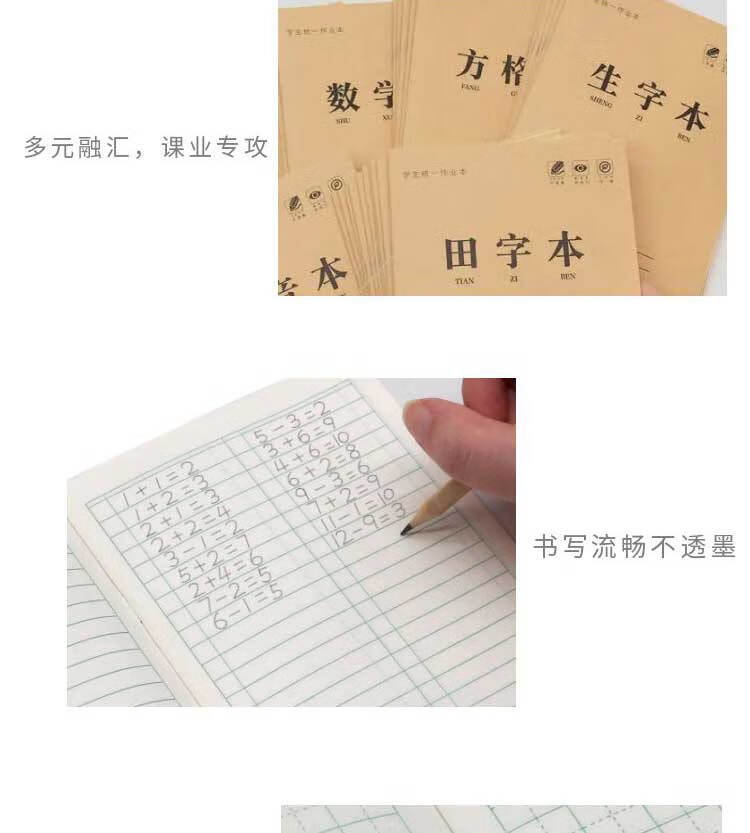 学生统一作业本
数学
SHU
方格
FANG
学生统一作业本
生字本
SHENG ZI BEN
多元融汇，课业专攻
音本
学生统一作业本
田字本
TIAN ZI BEN
1+1=2
1+2=3
2+1=3
2+2=4
3-1=2
5+2=7
2+4=6
7-2=5
6-1=5
5-3=2
3+6=9
4+6=10
6+2=8
9-3=6
7+2=9
11-1=10
12-9=3
书写流畅不透墨